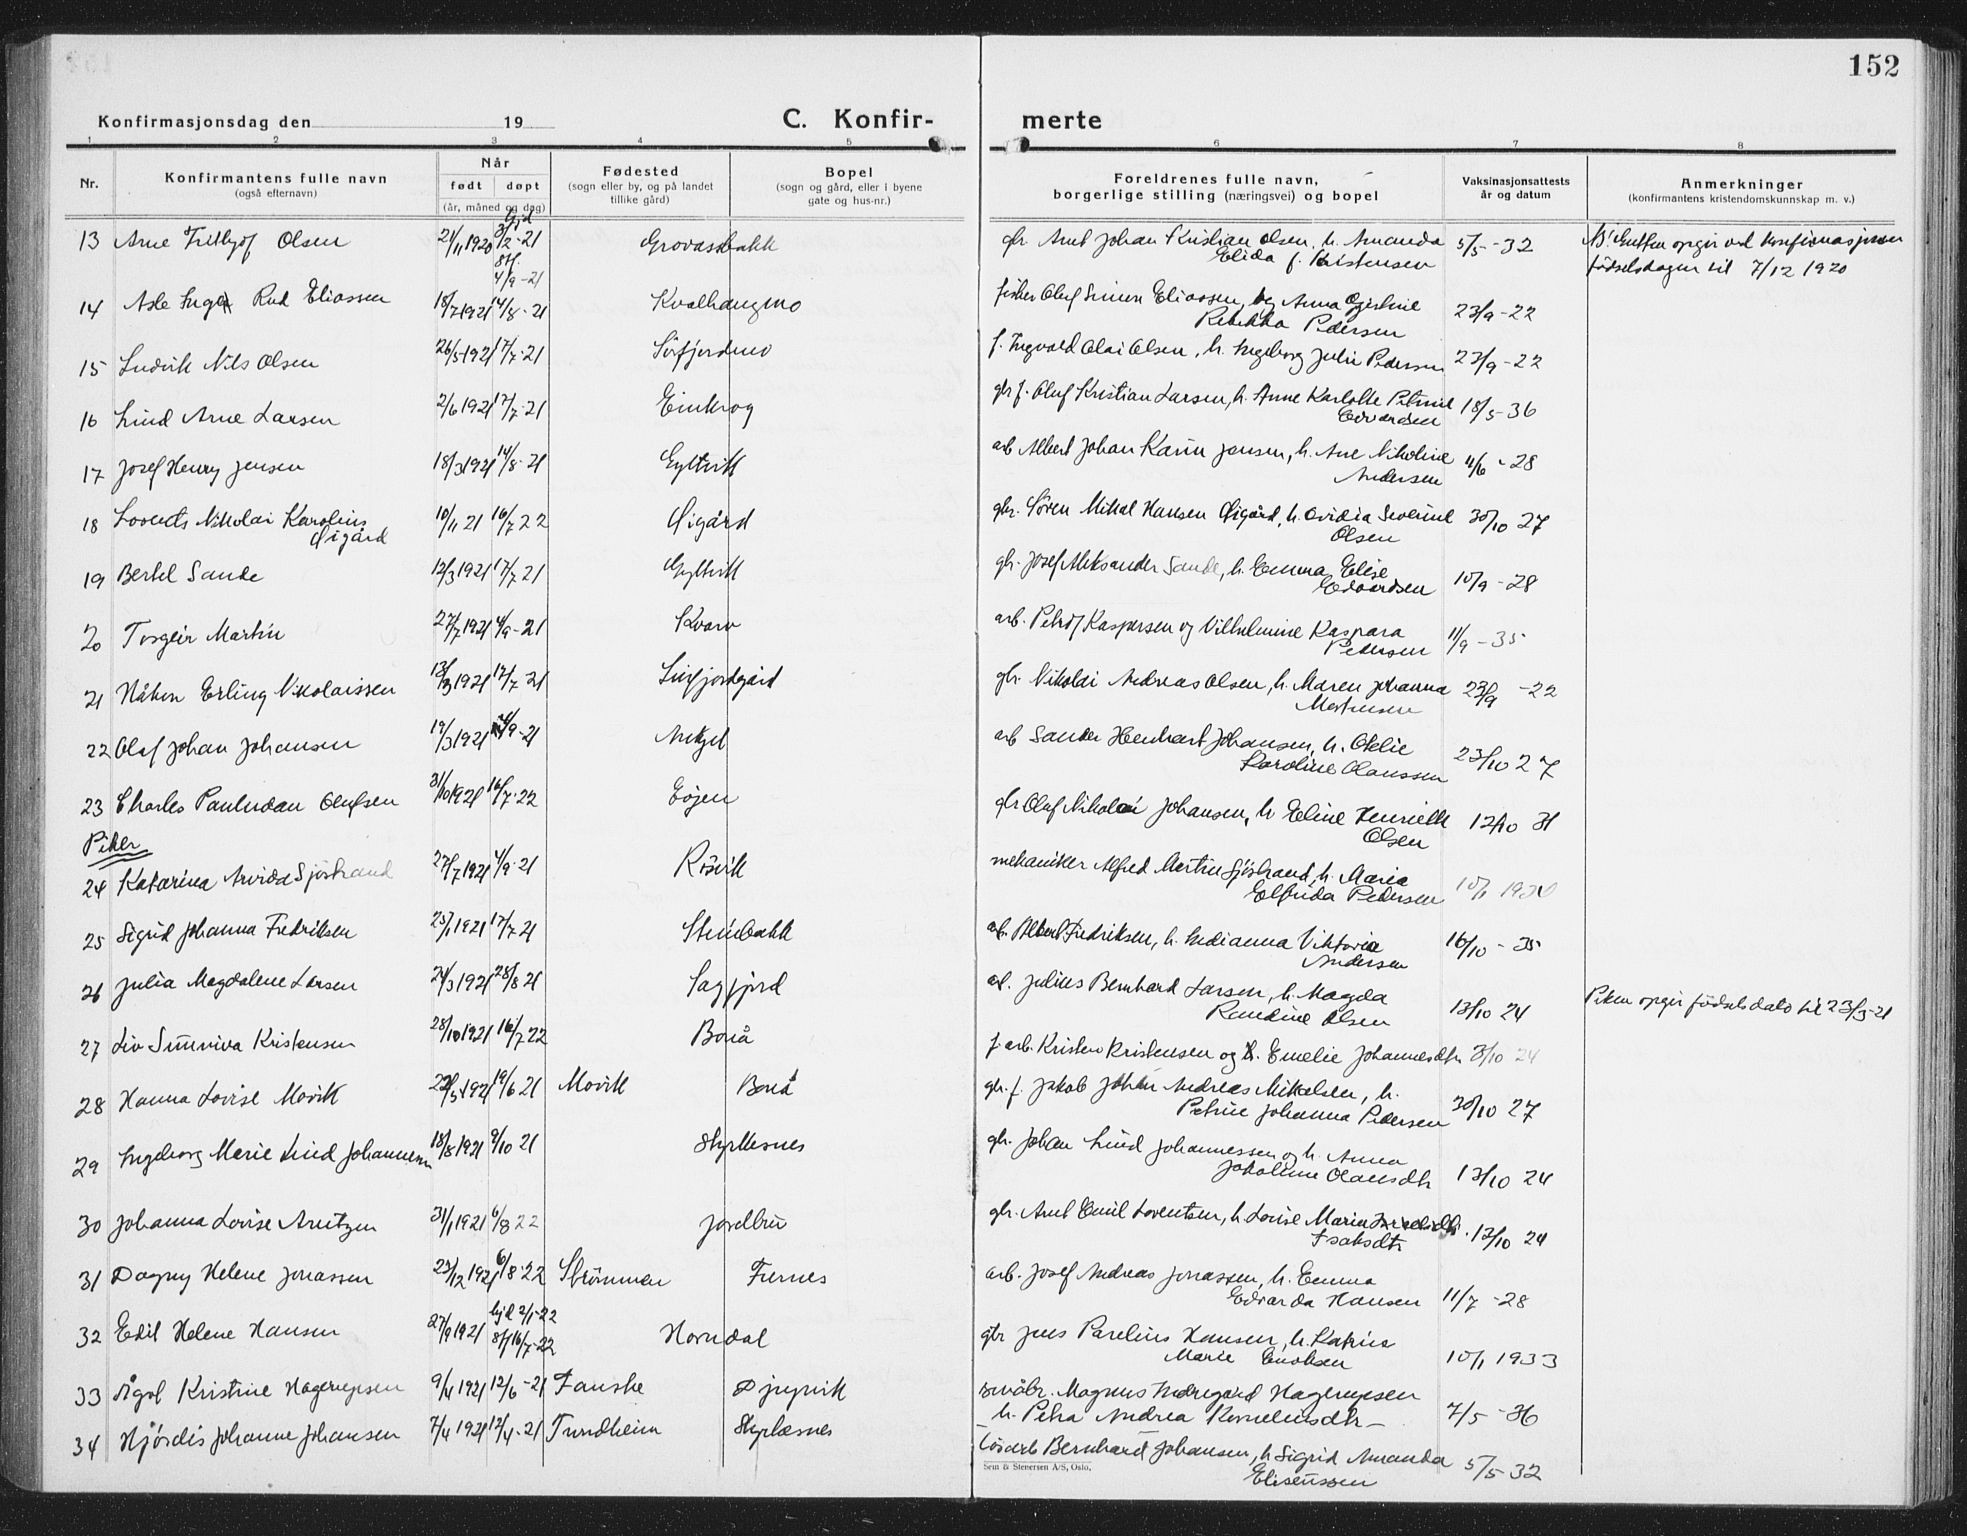 152
Konfirmasjonsdag den 19 C. Konfir- merte
1 2 3 4 5 6 7 8
Nr. Konfirmantens fulle navn (også efternavn) Når født døpt (år, måned og dag) Fødested (sogn eller by, og på landet tillike gård) Bopel (sogn og gård, eller i byene gate og hus-nr.) Foreldrenes fulle navn, borgerlige stilling (næringsvei) og bopel Vaksinasjonsattests år og datum Anmerkninger (konfirmantens kristendomskunnskap m. v.)
13 Arne Olsen 21/11 1920 hjd 3/12-21 st. 4/9-21 Grovassbakk gbr Arnt Johan Kristian Olsen, h. Amanda Elida f. Kristensen 5/5-32 N.B. Gutten opgir ved konfirmasjonen
fødselsdagen til 7/12 1920
14 Asle Inge Rud Eliassen 18/7 1921 14/8-21 Kvalhaugmo fisker Oluf Simon Eliassen, og Anna Gjertine Rebekka Pedersen 23/9-22
15 Ludvik Nils Olsen 26/5 1921 17/7-21 Sörfjordmo f. Ingvald Olai Olsen, h. Ingeborg Julie Pedersen 23/9-22
16 Lind Arne Larsen 2/6 1921 17/7-21 Einkrog gbr f. Oluf Kristian Larsen, h. Anne Karlotte Petrine Edvardsen 18/5-36
17 Josef Henry Jensen 18/3 1921 14/8-21 Gyltvik arb Albert Johan Karin Jensen, h. Ane Nikoline Andersen 4/6-28
18 Lorents Nikolai Karolius Øigård 10/11 21 16/7 22 Øigård gbr. Sören Mikal Hansen Øigård, h. Ovidia Severine Olsen 30/10 27
19 Bertel Sande 12/3 1921 17/7 21 Gyltvik gbr. Josef Aleksander Sande, h. Emma Elise Edvardsen 10/9-28
20 Torgeir Martin 27/7 1921 4/9-21 Kvarv arb. Petrof Kaspersen og Vilhelmine Kaspara Pedersen 11/9-35
21 Håkon Erling Nikolaissen 13/3 1921 17/7-21 Sörfjordgård gbr. Nikolai Andreas Olsen, h. Maren Johanna Martinsen 23/9-22
22 Olaf Johan Johansen 19/3 1921 4/9-21 arb Sander Henhart Johansen, h. Otelie Karoline Olaussen 23/10 27
23 Charles Pauludan Olufsen 31/10 1921 16/7-22 gbr Oluf Nikolai Johansen, h Eline Henriette Olsen 12/10 31
Piker
24 Katarina Arvida Sjöstrand 27/7 1921 4/9-21 Rösvik mekaniker Alfred Martin Sjöstrand, h. Maria Elfrida Pedersen
25 Sigrid Johanna Fredriksen 25/1 1921 17/7 21 Steinbakk arb. Albert Fredriksen, h. Indianna Viktoria Andersen 16/10-35
26 Julia Magdalene Larsen 24/3 1921 28/8 21 Sagfjord arb. Julius Bernhard Larsen, h. Magda Rundine Olsen 13/10 24 Piken opgir fødselsdato til 23/3-21
27 Liv Sunniva Kristensen 28/10 1921 16/7 22 Bonå f. arb. Kristen Kristensen og h. Emelie Johannesdtr 3/10 24
28 Hanna Lovise Movik 22/5 1921 19/6 21 Movik Bonå gbr. f. Jakob Johan Andreas Mikkelsen, h. Petrine Johanna Pedersen 30/10 27
29 Ingeborg Marie Lind Johannessen 18/8 1921 9/10 21 Styrkesnes gbr. Johan Lind Johannessen og h. Anna Jakobine Olausdtr 13/10 24
30 Johanna Lovise Arntzen 31/1 1921 6/8 22 Jordbru gbr. Arnt Emil Lorentsen, h Lovise Maria Isaksdtr 13/10 24
31 Dagny Helene Jonassen 23/12 1921 6/8-22 Strömmen Furnes arb. Josef Andreas Jonassen, h. Emma Edvarda Hansen 11/7-28
32 Edit Helene Hansen 27/9 1921 hjd 2/1-22 st 16/7-22 Horndal gbr Jens Parelius Hansen, h. Katrine Marie Enoksen 10/1 1933
33 Ågot Kristine Hagerupsen 9/4 1921 12/6-21 Fauske Djupvik småbr. Magnus Indregard Hagerupsen h. Petra Andrea Korneliusdtr 7/5-36
34 Hjördis Johanne Johansen 7/4 1921 17/4-21 Trondheim Styrkesnes løsarb Bernhard Johansen, h Sigrid Amanda Eliseussen 5/5 32
Sem & Stenersen A/S, Oslo.